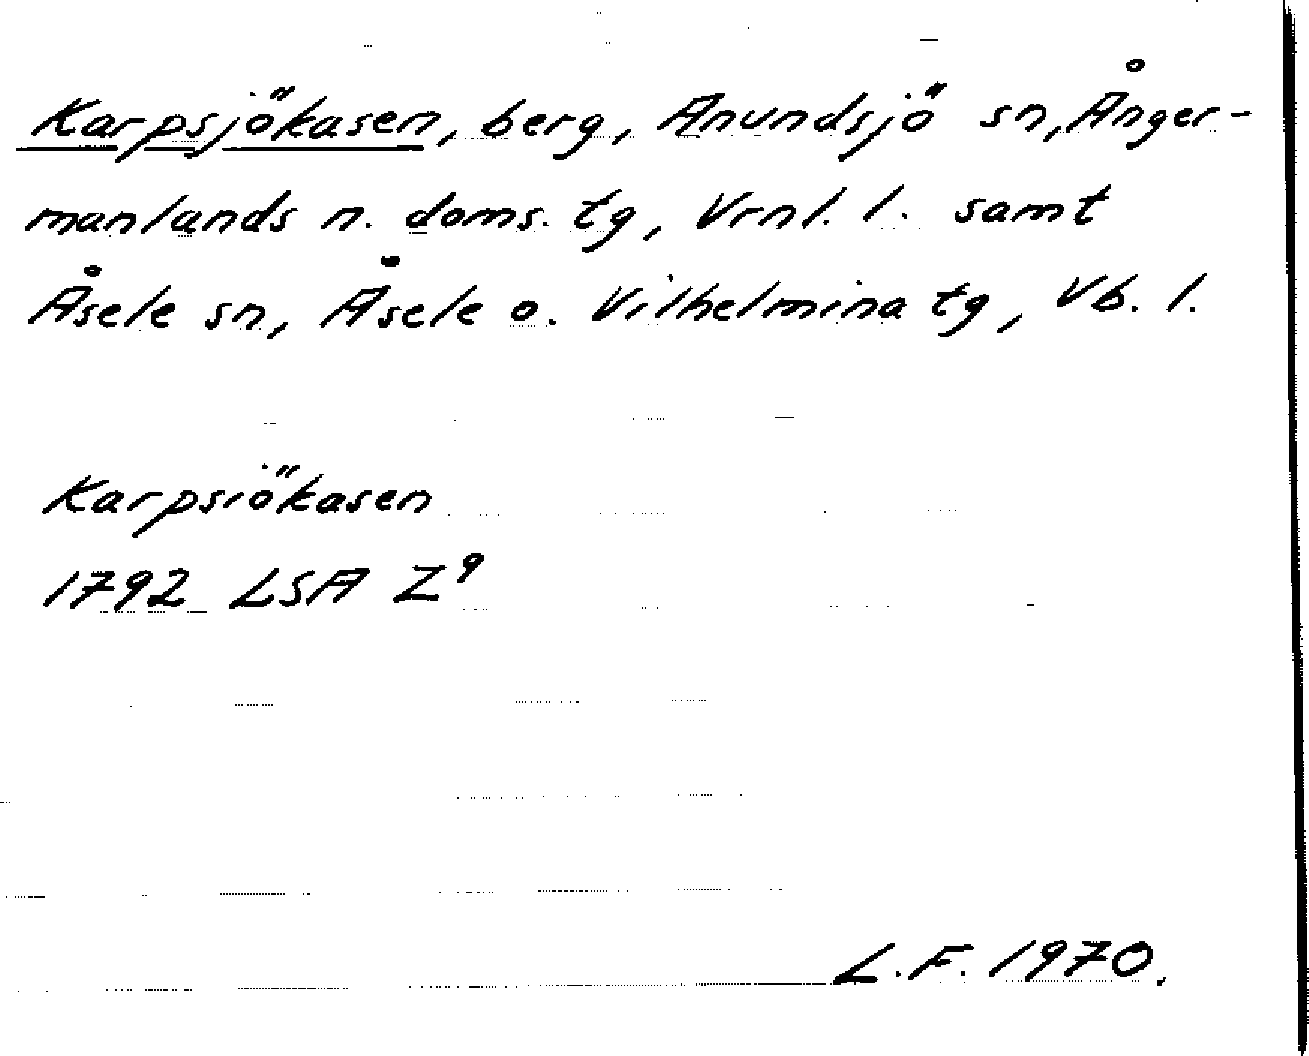 Karpsjökasen, berg, Anundsjö sn, Ånger-
manlands n. doms. tg, Vrnl. l. samt
Åsele sn, Åsele o. Vilhelmina tg, Vb. l.
Karpsiökasen
1792 LSA Z⁹
L.F. 1970.